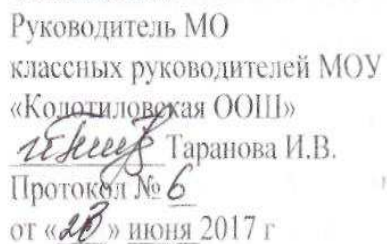 Руководитель МО
классных руководителей МОУ
«Колотиловская ООШ»
Таранова И.В.
Протокол № 6
от «23» июня 2017 г